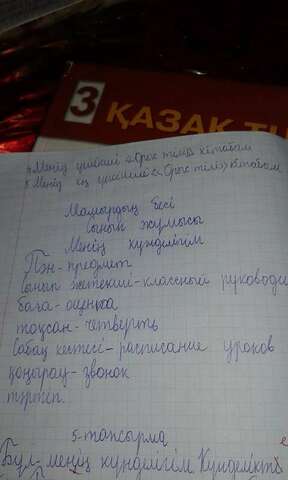 3
ҚАЗАҚ ТІ
4 Менің үлкен «Орыс тілі» кітабым
5 Менің ең «Орыс тілі» кітабым
Мамырдың бесі
Сынып жұмысы
Менің күнделігім
Пән - предмет
Сынып жетекші - классный руководи
баға - оценка
тоқсан - четверть
Сабақ кестесі - расписание уроков
қоңырау - звонок
тәртіп.
5-тапсырма
Бұл - менің күнделігім Күнделікте